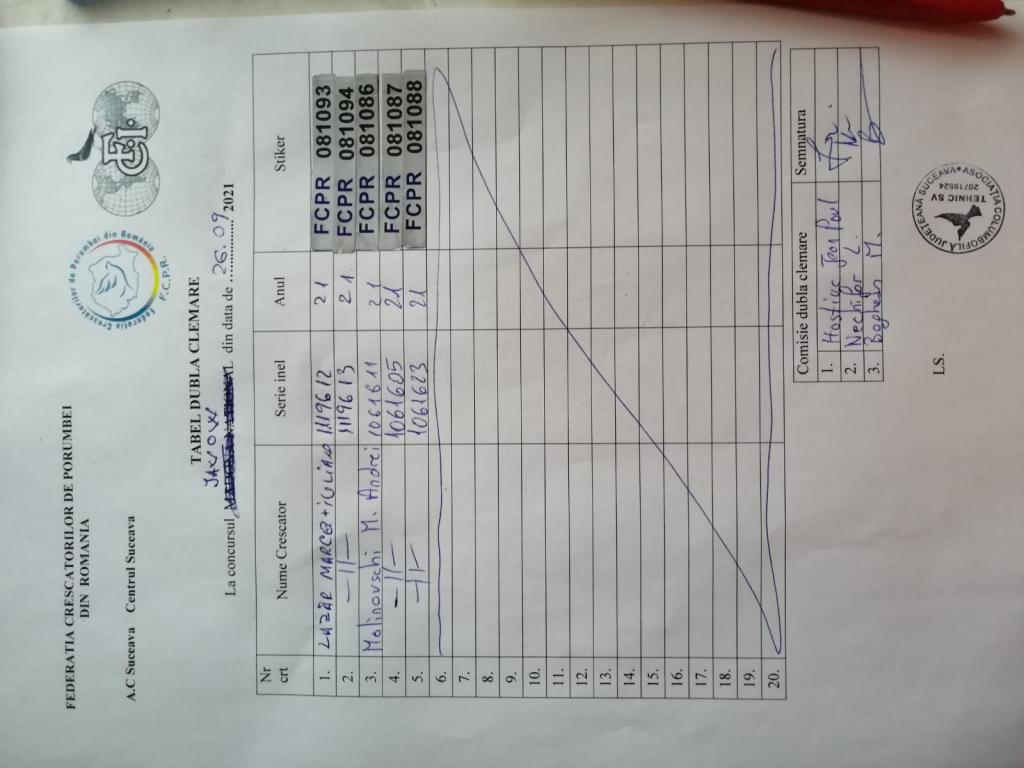 FEDERATIA CRESCATORILOR DE PORUMBEI
DIN ROMANIA
Federatia Crescatorilor de Porumbei din România
F.C.P.R.
C.F.I.
A.C Suceava Centrul Suceava
TABEL DUBLA CLEMARE
La concursul din data de 26.09.2021
Nr crt Nume Crescator Serie inel Anul Stiker
1. LAZĂR MARCEL+IULIAN 1119612 21 FCPR 081093
2. —||— 1119613 21. FCPR 081094
3. Molinovschi M. Andrei 1061611 21 FCPR 081086
4. —||— 1061605 21 FCPR 081087
5. —||— 1061623 21 FCPR 081088
6.
7.
8.
9.
10.
11.
12.
13.
14.
15.
16.
17.
18.
19.
20.
Comisie dubla clemare Semnatura
1. Paul
2. Nechifor L.
3. M.
LS.
ASOCIAȚIA COLUMBOFILĂ JUDEȚEANĂ SUCEAVA
20719524
TEHNIC SV